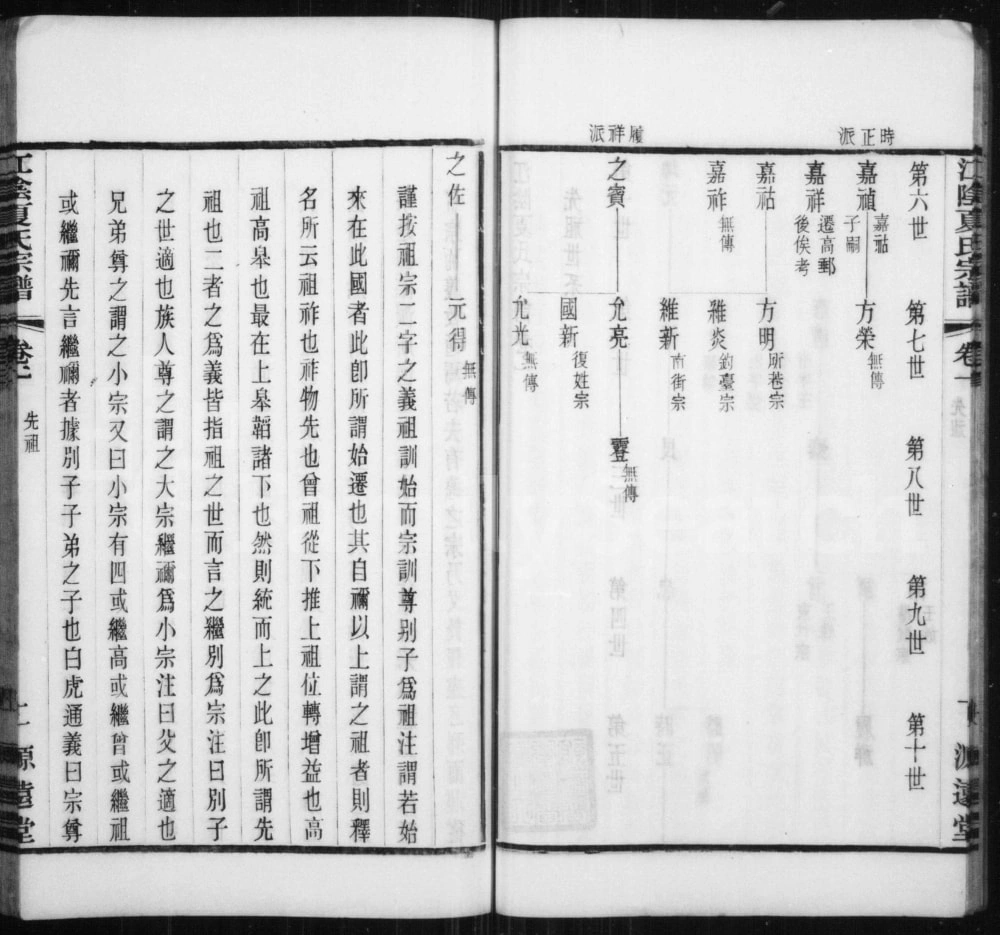 江陰夏氏宗譜
卷一
源遠堂
第六世 第七世 第八世 第九世 第十世
時正派
嘉禎 嘉祜子嗣 方榮 無傳
嘉祥 遷高郵後俟考
嘉祜 方明 所巷宗
嘉祚 無傳 雅炎 鈞臺宗
維新 南街宗
履祥派
之寶 允亮 無傳
國新 復姓宗
允光 無傳
之佐 元得 無傳
謹按祖宗二字之義祖訓始而宗訓尊别子爲祖注謂若始
來在此國者此卽所謂始遷也其自禰以上謂之祖者則釋
名所云祖祚也祚物先也曾祖從下推上祖位轉增益也高
祖高皋也最在上皋韜諸下也然則統而上之此卽所謂先
祖也二者之爲義皆指祖之世而言之繼別爲宗注曰別子
之世適也族人尊之謂之大宗繼禰爲小宗注曰父之適也
兄弟尊之謂之小宗又曰小宗有四或繼高或繼曾或繼祖
或繼禰先言繼禰者據別子子弟之子也白虎通義曰宗尊
江陰夏氏宗譜
先祖
源遠堂